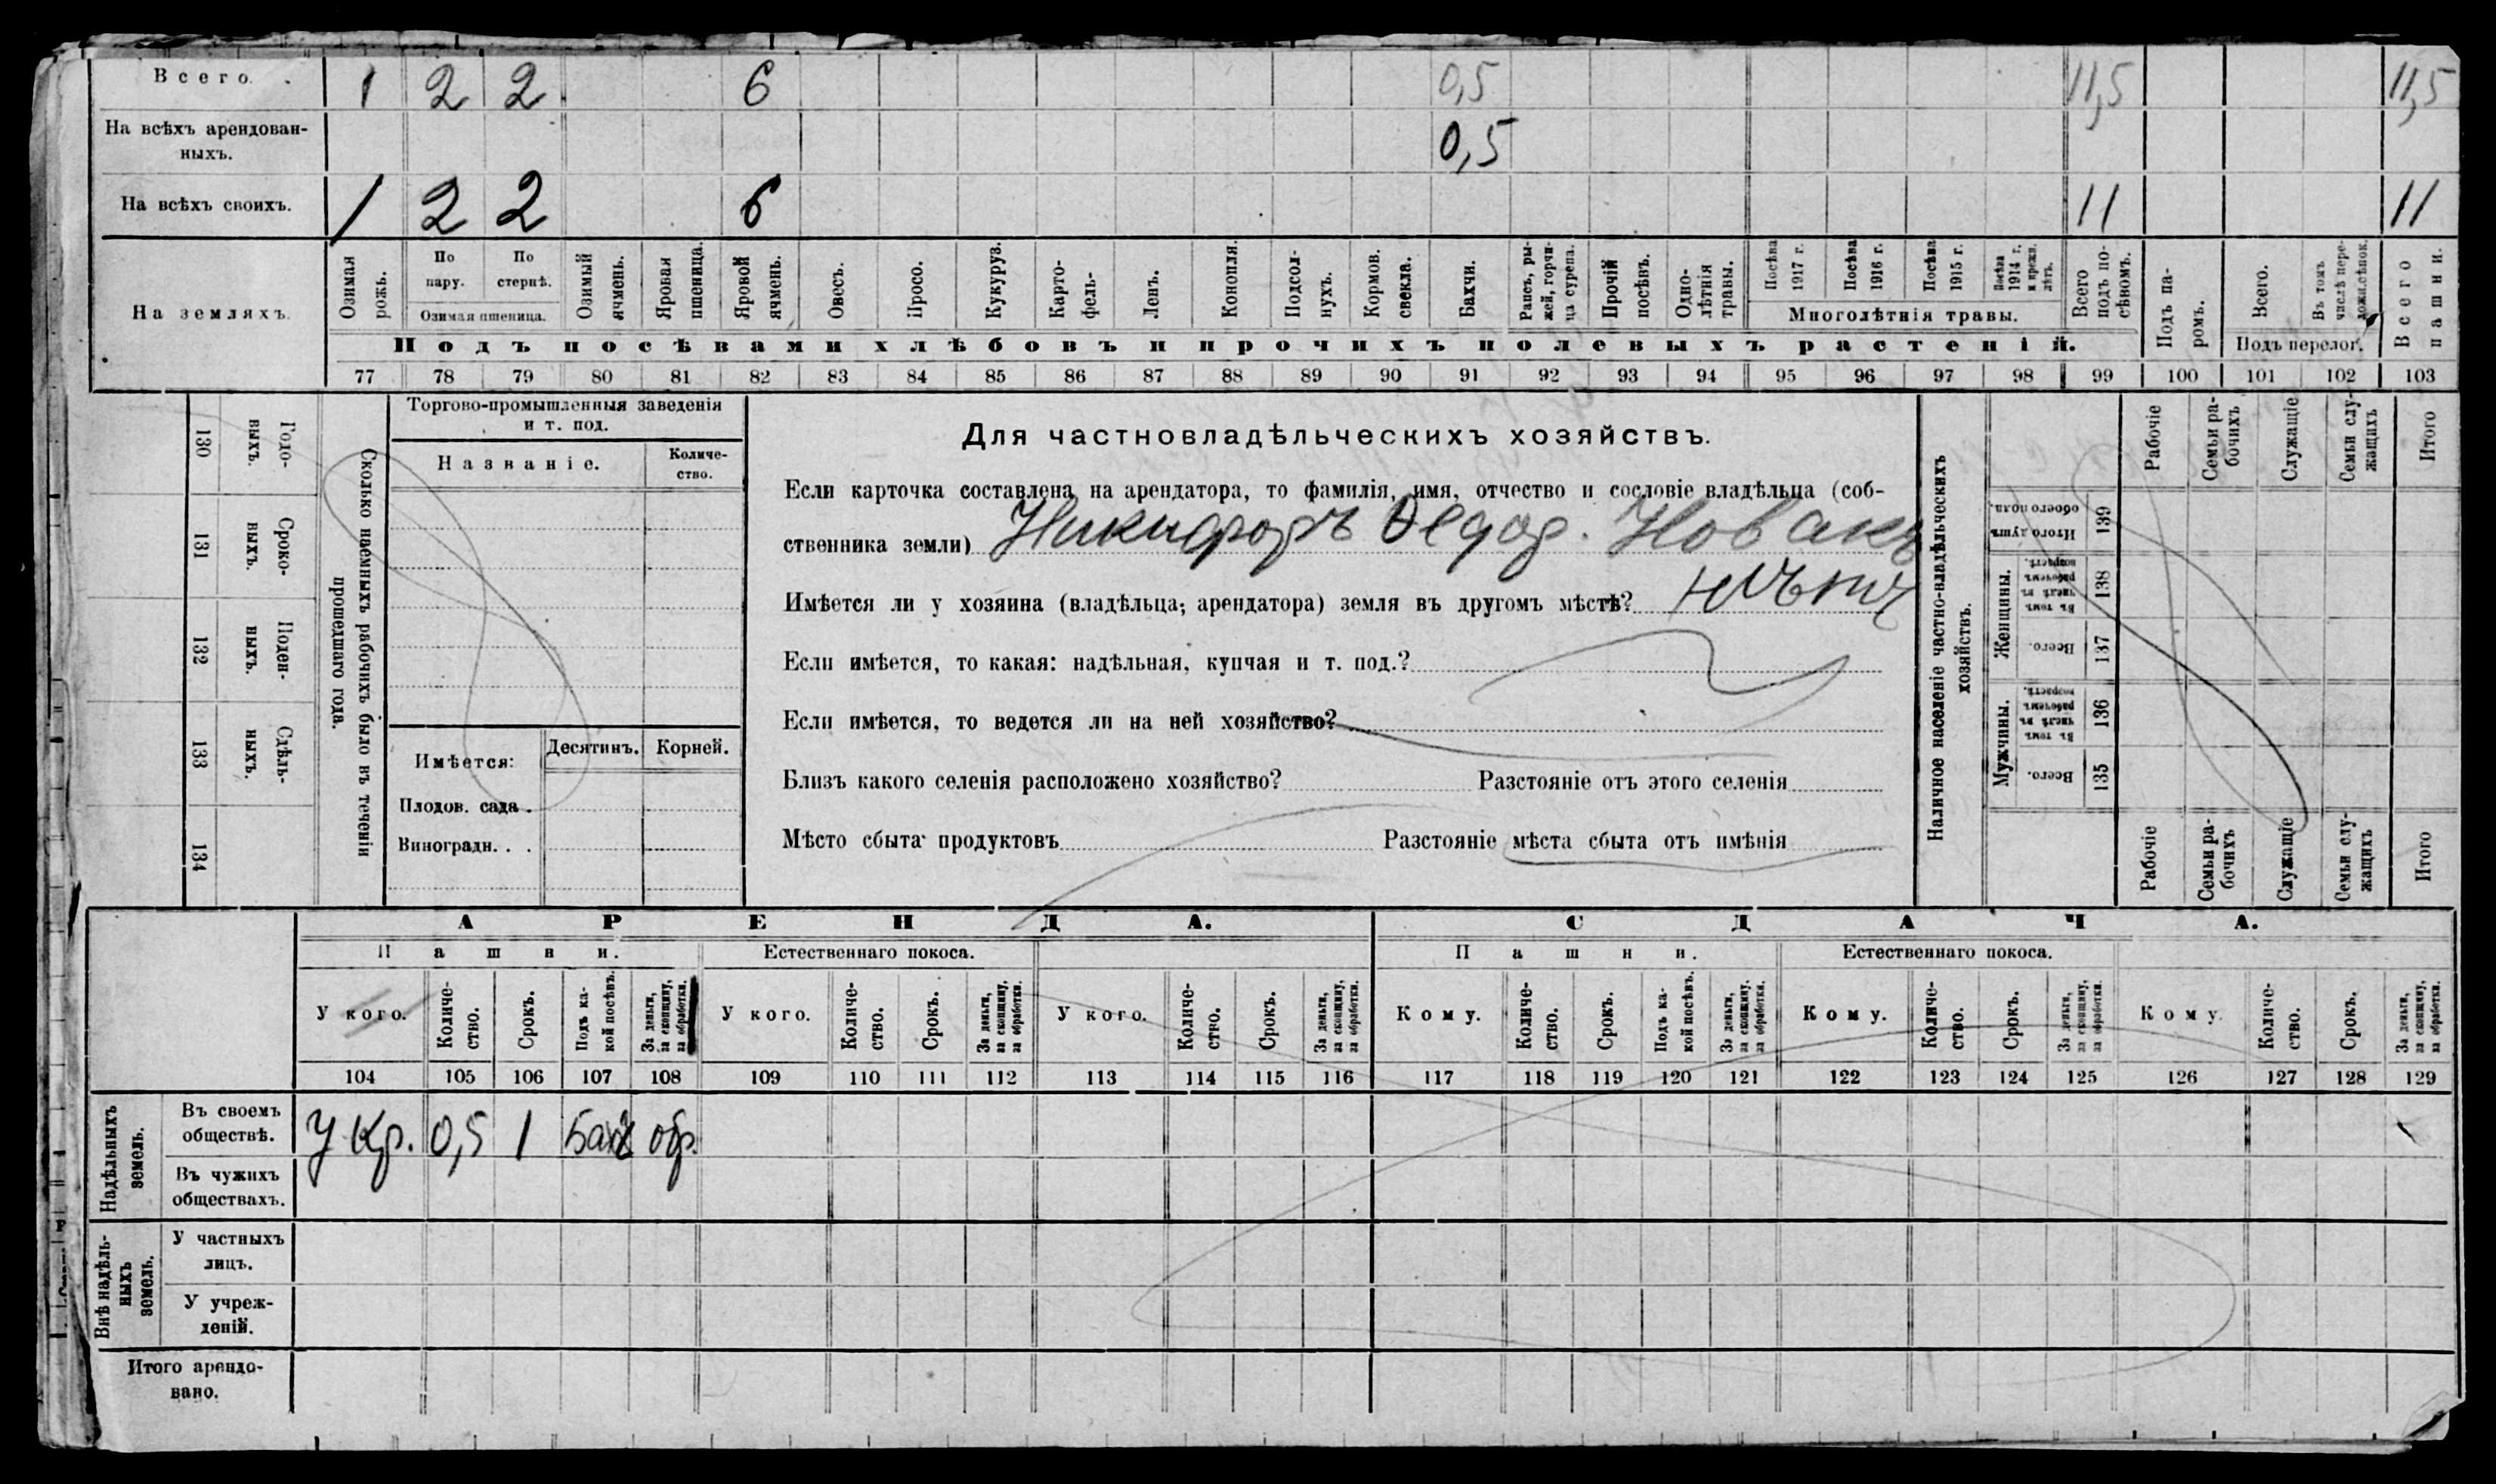 Всего. 1 2 2 6 0,5 11,5 11,5
На всѣхъ арендован-
ныхъ. 0,5
На всѣхъ своихъ. 1 2 2 6 11 11
На земляхъ.
Озимая рожь.
По пару.
По стернѣ.
Озимая пшеница.
Озимый ячмень.
Яровая пшеница.
Яровой ячмень.
Овесъ.
Просо.
Кукуруз.
Карто-
фель-
Ленъ.
Конопля.
Подсол-
нухъ.
Кормов.
свекла.
Бахчи.
Рапсъ, ры-
жей, горчи-
ца сурепа.
Прочій
посѣвъ.
Одно-
лѣтнія
травы.
Посѣва
1917 г.
Посѣва
1916 г.
Посѣва
1915 г.
Посѣва
1914 г.
и прежн.
лѣтъ.
Многолѣтнія травы.
Всего
подъ по-
сѣвомъ.
Подъ па-
ромъ.
Всего.
Въ томъ
числѣ пере-
Подъ перелог.
Всего
пашни.
Подъ посѣвами хлѣбовъ и прочихъ полевыхъ растеній.
77 78 79 80 81 82 83 84 85 86 87 88 89 90 91 92 93 94 95 96 97 98 99 100 101 102 103
130 Годо-
выхъ.
131 Сроко-
выхъ.
132 Поден-
ныхъ.
133 Сдѣль-
ныхъ.
134
Сколько наемныхъ рабочихъ было въ теченіи
прошедшаго года.
Торгово-промышленныя заведенія
и т. под.
Названіе.
Количе-
ство.
Имѣется:
Десятинъ. Корней.
Плодов. сада .
Виноградн. . .
Для частновладѣльческихъ хозяйствъ.
Если карточка составлена на арендатора, то фамилія, имя, отчество и сословіе владѣльца (соб-
ственника земли) Никифоръ Ѳедор. Новакъ
Имѣется ли у хозяина (владѣльца, арендатора) земля въ другомъ мѣстѣ? нѣтъ
Если имѣется, то какая: надѣльная, купчая и т. под.?
Если имѣется, то ведется ли на ней хозяйство?
Близъ какого селенія расположено хозяйство? Разстояніе отъ этого селенія
Мѣсто сбыта продуктовъ Разстояніе мѣста сбыта отъ имѣнія
Наличное населеніе частно-владѣльческихъ
хозяйствъ.
Рабочіе
Семьи ра-
бочихъ
Служащіе
Семьи слу-
жащихъ
Итого
Итого душъ
обоего пола.
139
Женщины.
Въ томъ
числѣ въ
рабочемъ
возрастѣ.
138
Всего.
137
Мужчины.
Въ томъ
числѣ въ
рабочемъ
возрастѣ.
136
Всего.
135
Рабочіе
Семьи ра-
бочихъ
Служащіе
Семьи слу-
жащихъ
Итого
АРЕНДА. СДАЧА.
Пашни. Естественнаго покоса. Пашни. Естественнаго покоса.
У кого.
Количе-
ство.
Срокъ.
Подъ ка-
кой посѣвъ.
За деньги,
за скопщину,
за обработки.
У кого.
Количе-
ство.
Срокъ.
За деньги,
за скопщину,
за обработки.
У кого.
Количе-
ство.
Срокъ.
За деньги,
за скопщину,
за обработки.
Кому.
Количе-
ство.
Срокъ.
Подъ ка-
кой посѣвъ.
За деньги,
за скопщину,
за обработки.
Кому.
Количе-
ство.
Срокъ.
За деньги,
за скопщину,
за обработки.
Кому.
Количе-
ство.
Срокъ.
За деньги,
за скопщину,
за обработки.
104 105 106 107 108 109 110 111 112 113 114 115 116 117 118 119 120 121 122 123 124 125 126 127 128 129
Надѣльныхъ
земель.
Въ своемъ
обществѣ. У Кр. 0,5 1 Бахч обр.
Въ чужихъ
обществахъ.
Внѣ надѣль-
ныхъ
земель.
У частныхъ
лицъ.
У учреж-
деній.
Итого арендо-
вано.